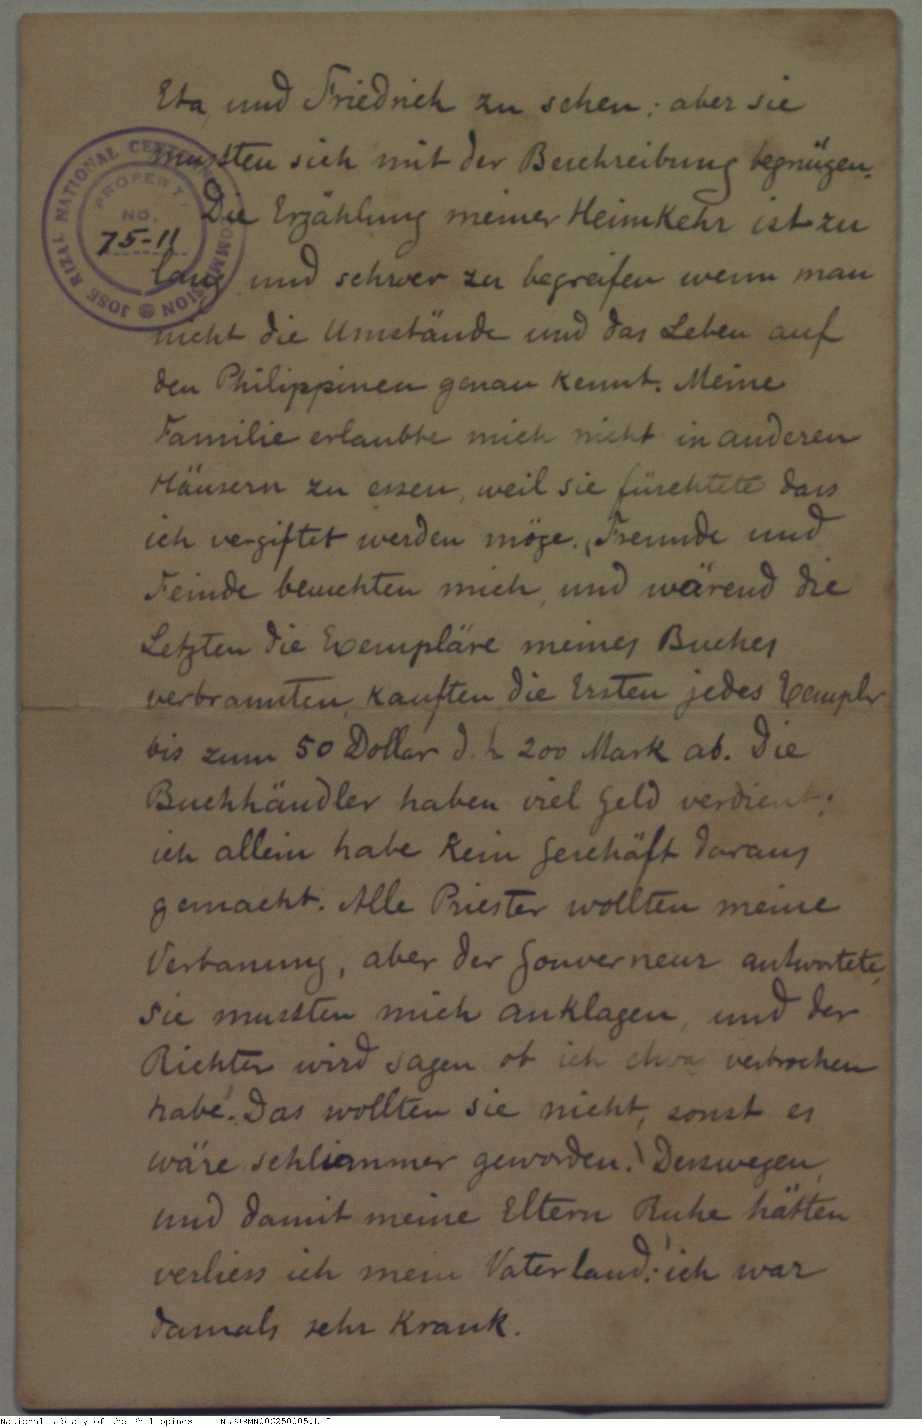 Eta und Friedrich zu sehen; aber sie
mussten sich mit der Beschreibung begnügen.
Die Erzählung meiner Heimkehr ist zu
lang und schwer zu begreifen wenn man
nicht die Umstände und das Leben auf
den Philippinen genau kennt. Meine
Familie erlaubte mich nicht in anderen
Häusern zu essen, weil sie fürchtete dass
ich vergiftet werden möge. Freunde und
Feinde besuchten mich, und wärend die
Letzten die Exempläre meines Buches
verbrannten, kauften die Ersten jedes Exemplr
bis zum 50 Dollar d. h 200 Mark ab. Die
Buchhändler haben viel Geld verdient;
ich allein habe kein Geschäft daraus
gemacht. Alle Priester wollten meine
Verbanung, aber der Gouverneur antwortete,
sie mussten mich anklagen, und der
Richter wird sagen ob ich etwa verbrochen
habe. Das wollten sie nicht, sonst es
wäre schlimmer geworden! Desswegen,
und damit meine Eltern Ruhe hätten
verliess ich mein Vaterland; ich war
damals sehr krank.
JOSE RIZAL NATIONAL CENTENNIAL COMMISSION
PROPERTY
NO.
75-11
National Library of the Philippines